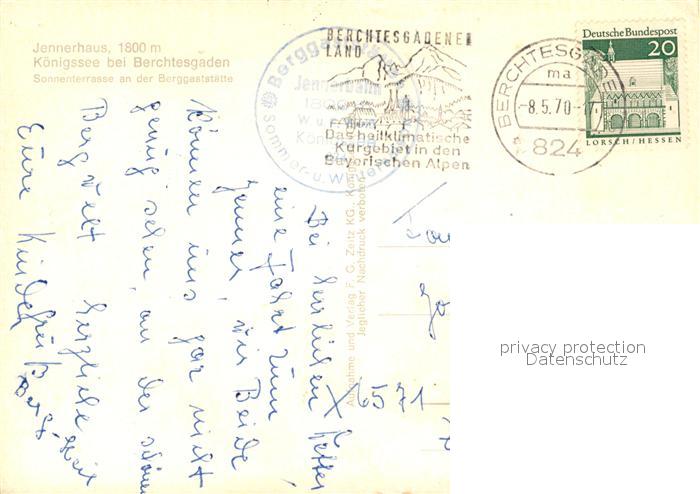 Jennerhaus, 1800 m
Königssee bei Berchtesgaden
Sonnenterrasse an der Berggaststätte
BERCHTESGADENER
LAND
Das heilklimatische
Kurgebiet in den
Bayerischen Alpen
Jennerbahn
Sommer- u. Winter
BERCHTESGADEN
ma
-8.5.70-
824
Deutsche Bundespost
20
LORSCH/HESSEN
Aufnahme und Verlag F. G. Zeitz KG., König
Jeglicher Nachdruck verboten
Bei herrlichen Wetter
eine Fahrt zum
Jenner, wir Beide
können uns gar nicht
genug sehen, an der schönen
Berg welt herzliche
Eure Kinder
6571
privacy protection
Datenschutz